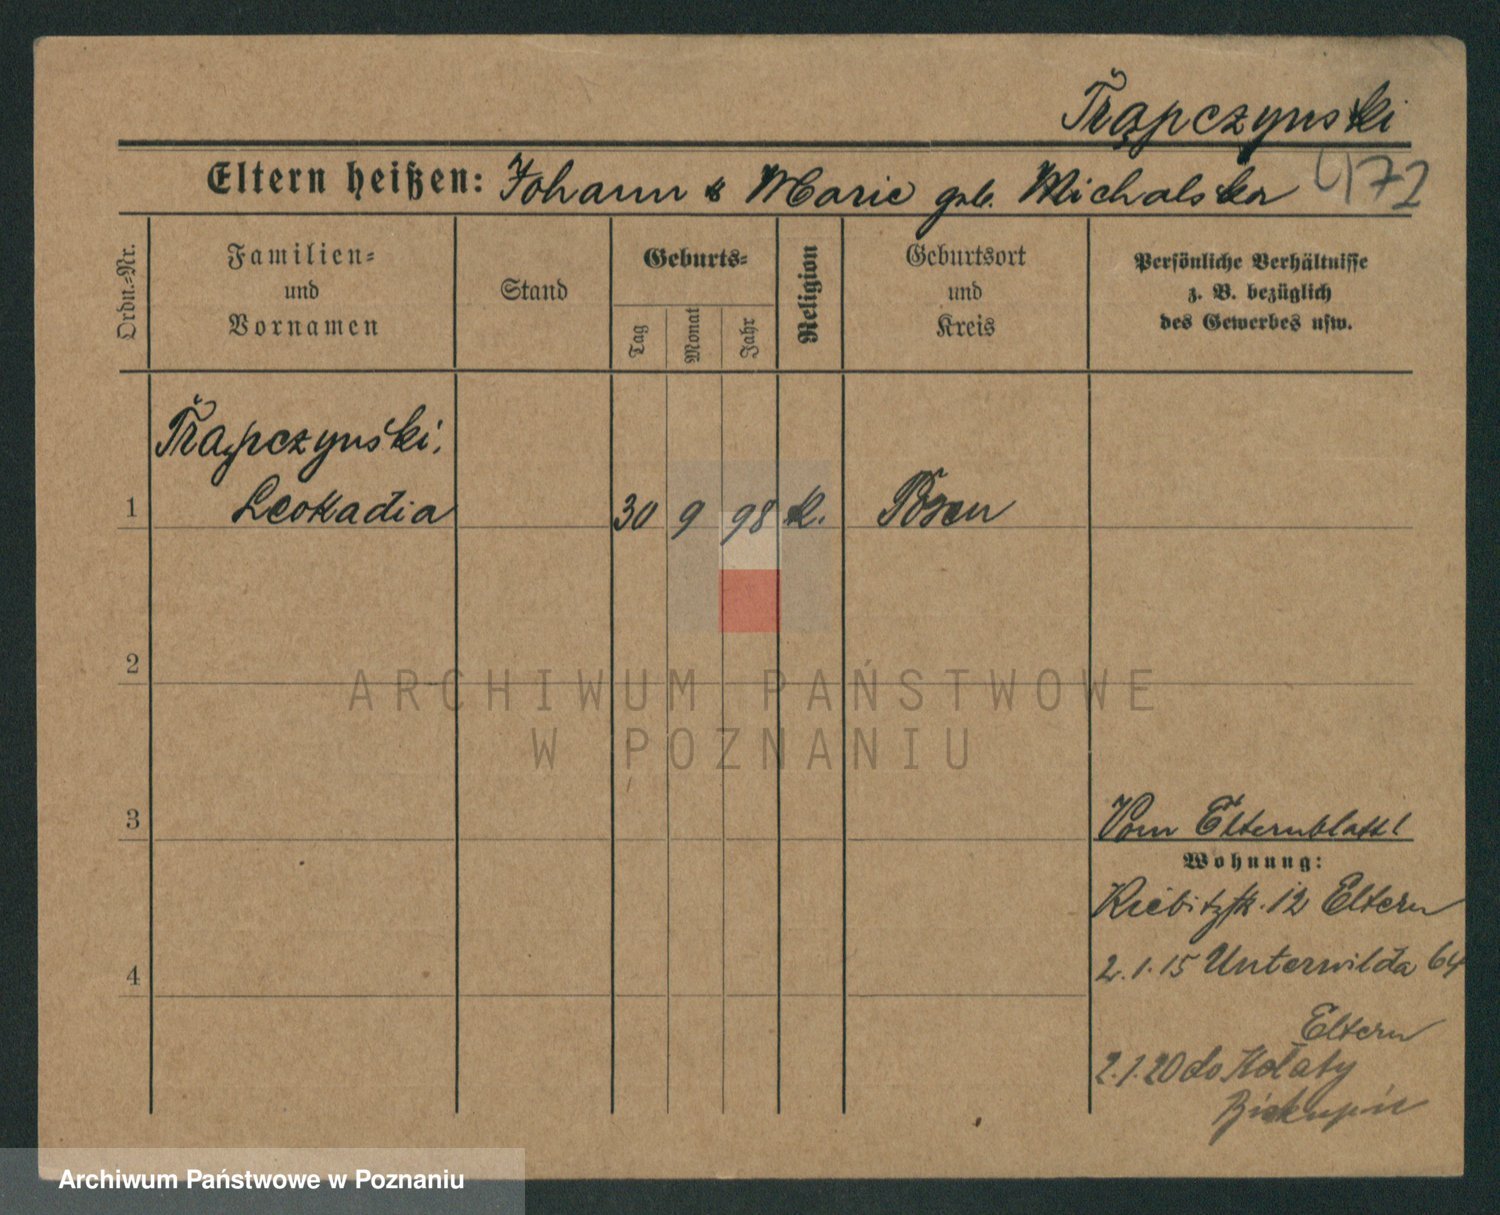 Trąpczynski
Eltern heißen: Johann & Marie geb. Michalska 472
Ordn.=Nr.
Familien=
und
Vornamen
Stand
Geburts=
Tag
Monat
Jahr
Religion
Geburtsort
und
Kreis
Persönliche Verhältnisse
z. B. bezüglich
des Gewerbes usw.
Trąpczynski,
1 Leokadia 30 9 98 k. Posen
2
ARCHIWUM PAŃSTWOWE
W POZNANIU
3 Vom Elternblatt!
Wohnung:
Kiebitzstr. 12 Eltern
4 2.1.15 Unterwilda 64
Eltern
2.1.20 do Kołaty
Biskupic
Archiwum Państwowe w Poznaniu